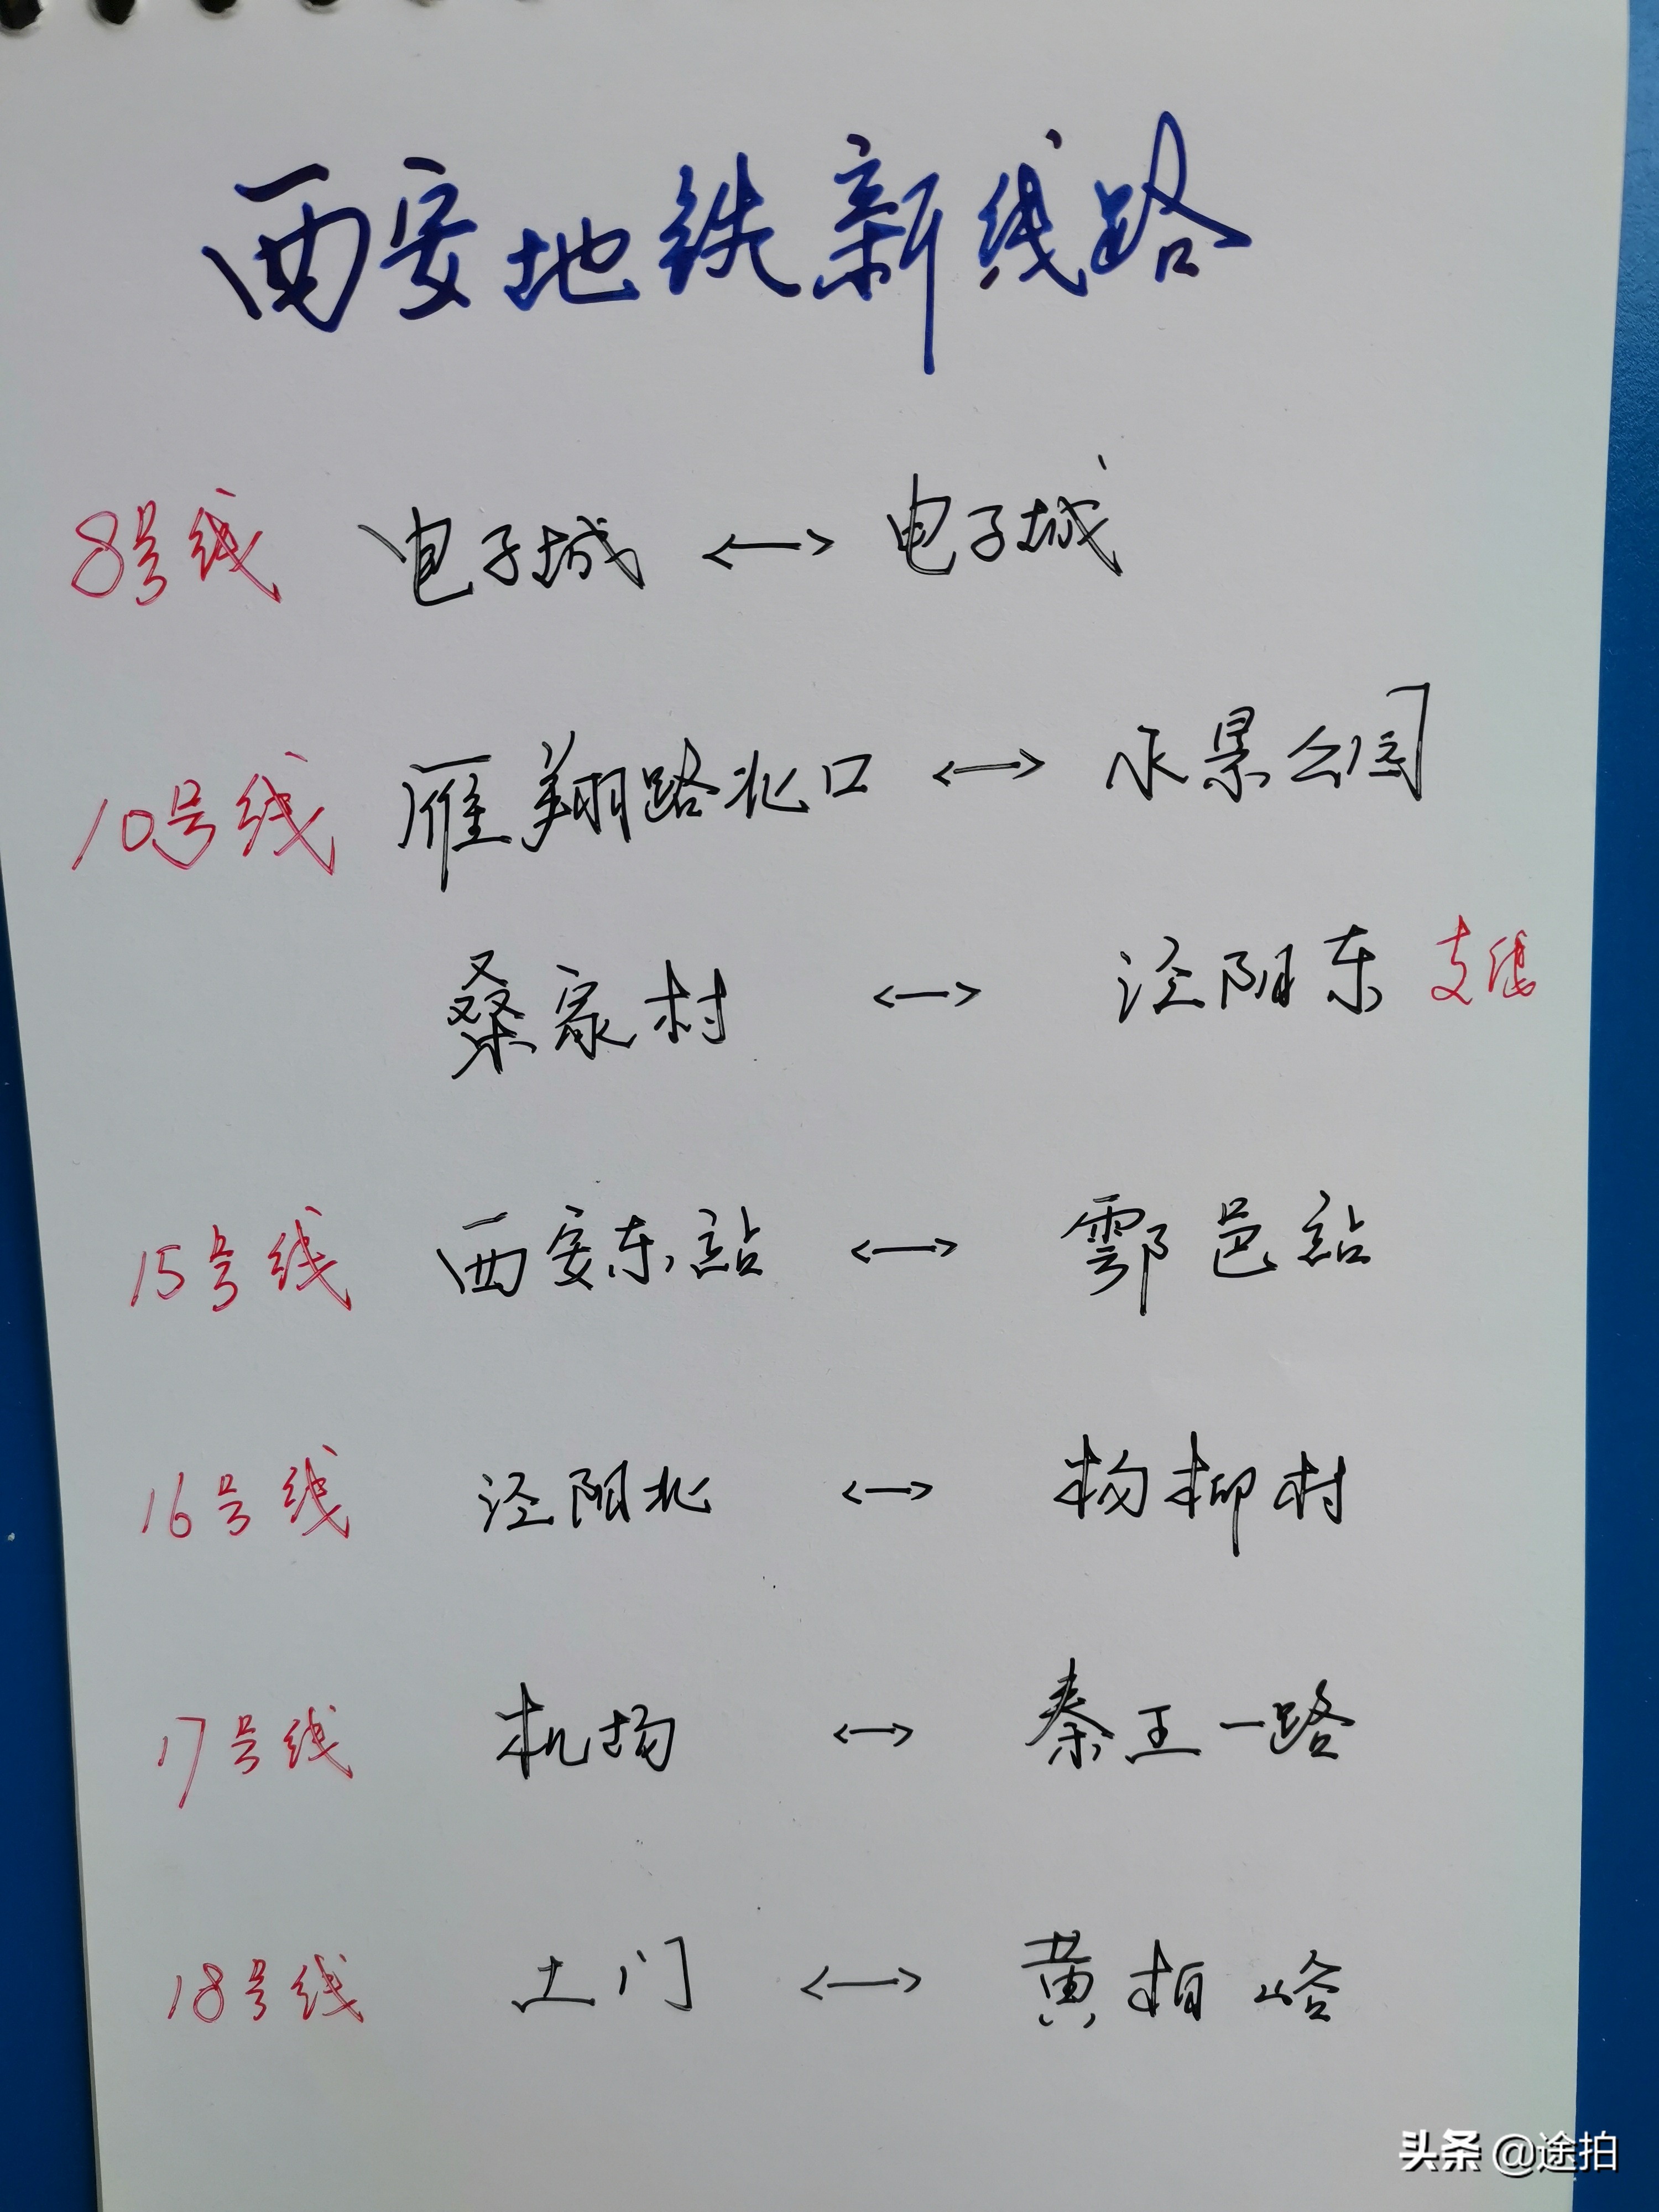 西安地铁新线路
8号线 电子城 <—> 电子城
10号线 雁翔路北口 <—> 水景公园
桑家村 <—> 泾阳东 支线
15号线 西安东站 <—> 鄠邑站
16号线 泾阳北 <—> 杨柳村
17号线 机场 <—> 秦王一路
18号线 土门 <—> 黄柏峪
头条 @途拍